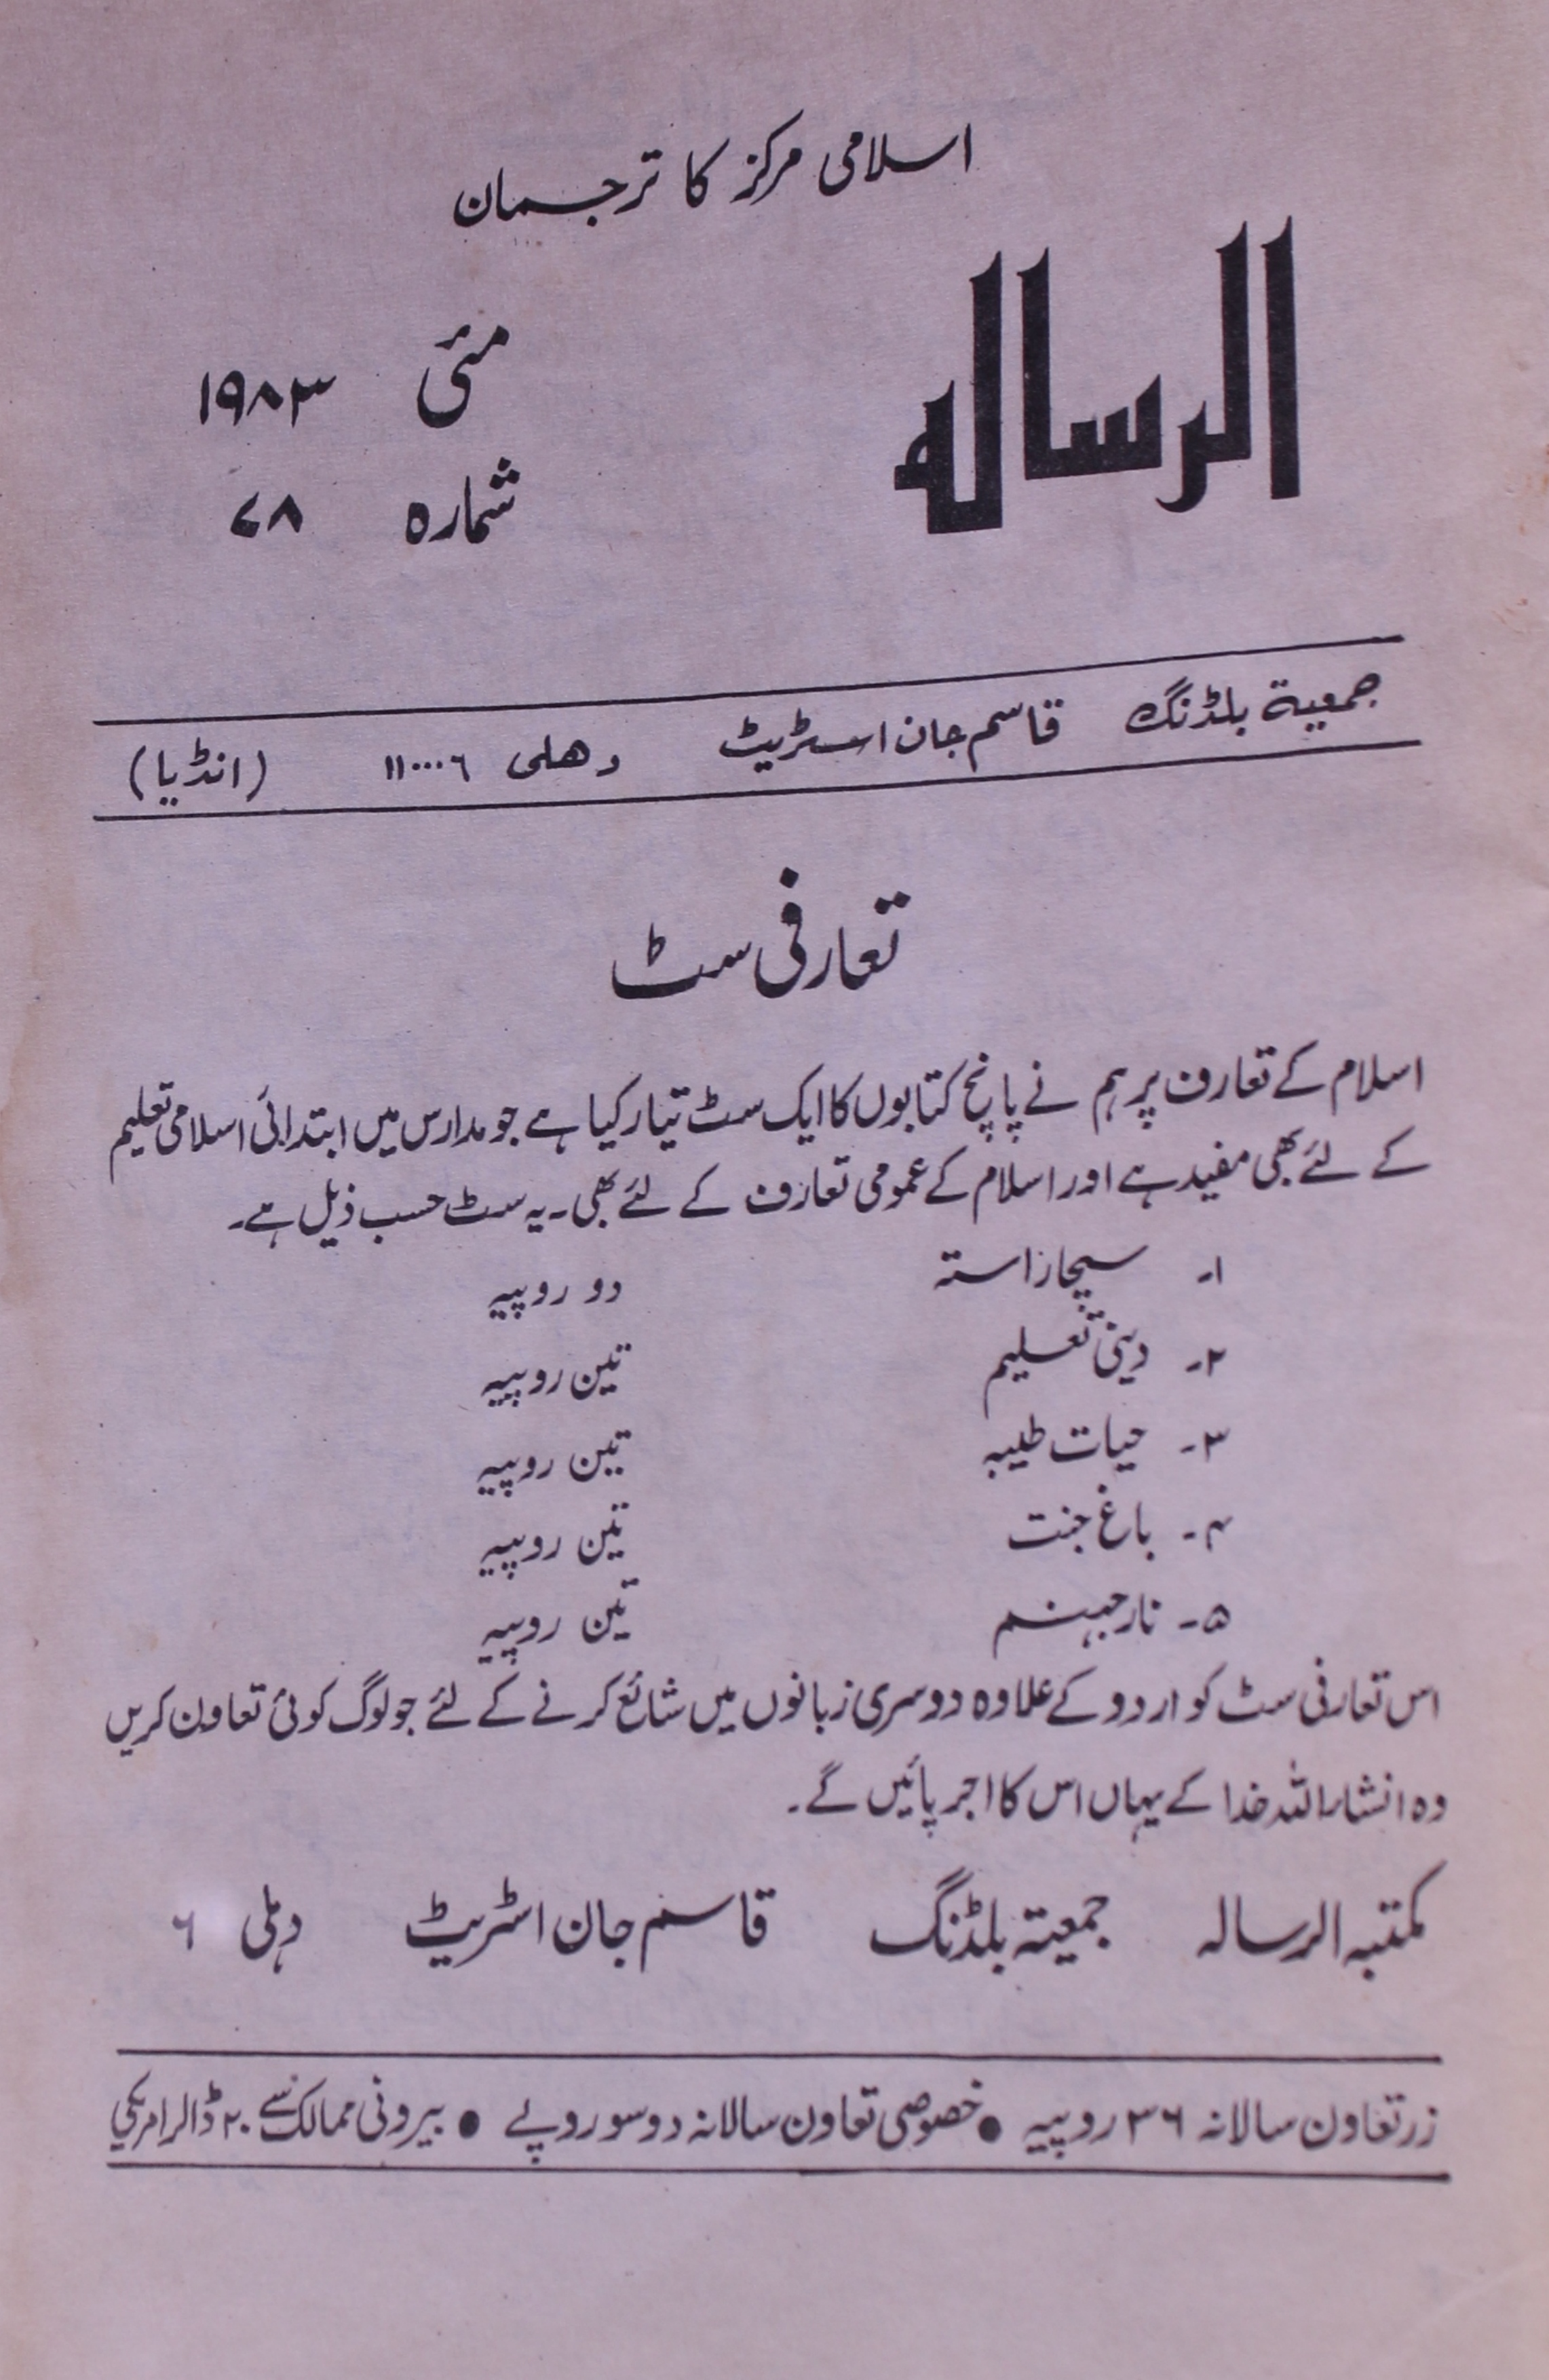 اسلامی مرکز کا ترجمان
الرسالہ
مئی ۱۹۸۳
شمارہ ۷۸
جمعیۃ بلڈنگ قاسم جان اسٹریٹ دھلی ۱۱۰۰۰۶ (انڈیا)
تعارفی سٹ
اسلام کے تعارف پر ہم نے پانچ کتابوں کا ایک سٹ تیار کیا ہے جو مدارس میں ابتدائی اسلامی تعلیم
کے لئے بھی مفید ہے اور اسلام کے عمومی تعارف کے لئے بھی۔ یہ سٹ حسب ذیل ہے۔
۱۔ سچا راستہ دو روپیہ
۲۔ دینی تعلیم تین روپیہ
۳۔ حیات طیبہ تین روپیہ
۴۔ باغ جنت تین روپیہ
۵۔ نار جہنم تین روپیہ
اس تعارفی سٹ کو اردو کے علاوہ دوسری زبانوں میں شائع کرنے کے لئے جو لوگ کوئی تعاون کریں
وہ انشاراللہ خدا کے یہاں اس کا اجر پائیں گے۔
مکتبہ الرسالہ جمعیۃ بلڈنگ قاسم جان اسٹریٹ دہلی ۶
زر تعاون سالانہ ۳۶ روپیہ ● خصوصی تعاون سالانہ دو سو روپے ● بیرونی ممالک سے ۲۰ ڈالر امریکی